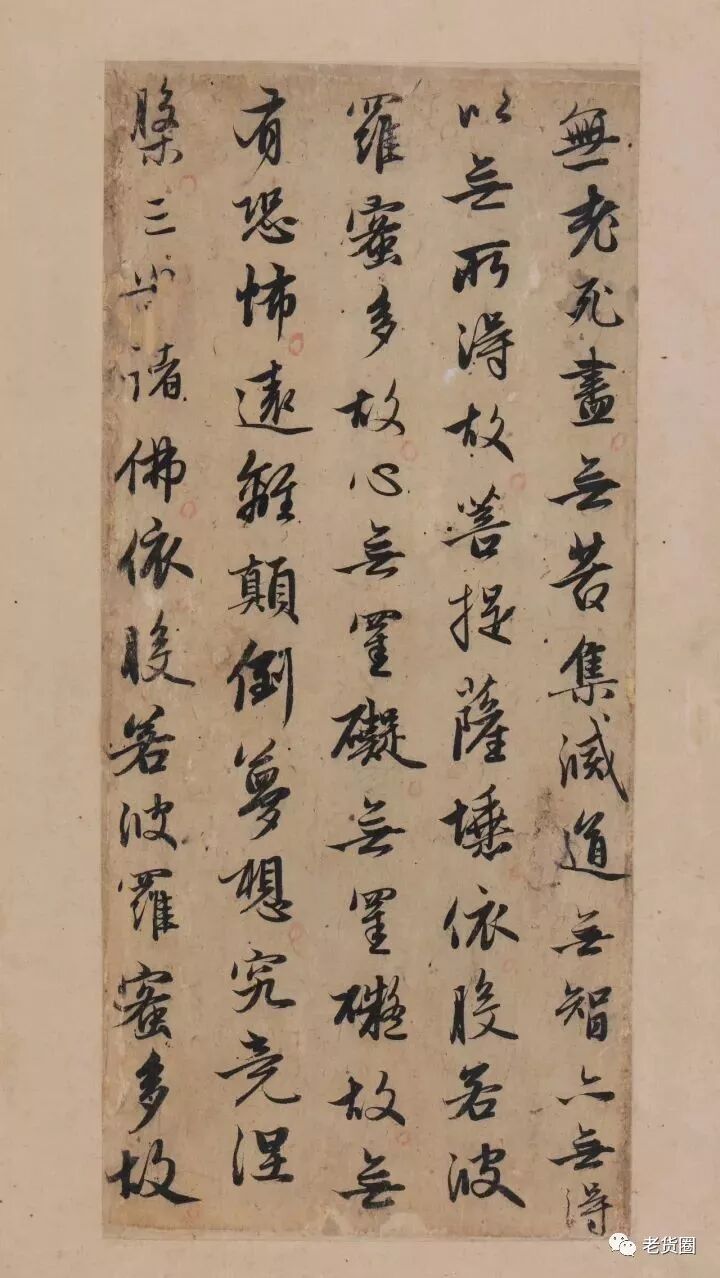 無老死盡無苦集滅道無智亦無得
以無所得故菩提薩埵依般若波
羅蜜多故心無罣礙無罣礙故無
有恐怖遠離顛倒夢想究竟涅
槃三世諸佛依般若波羅蜜多故
老货圈